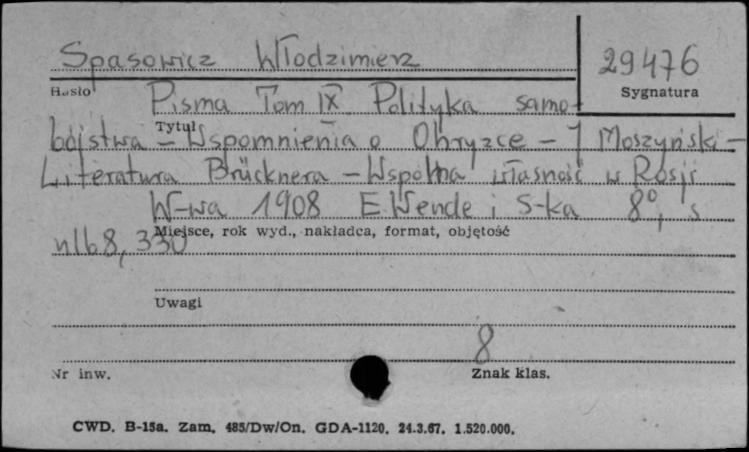 Spasowicz Włodzimierz
29476
Hasło
Sygnatura
Pisma Tom IX Polityka samo-
Tytuł
bójstwa - Wspomnienia o Ohryzce - J Moszyński -
Literatura Brücknera - Wspólna własność w Rosji
W-wa 1908 E. Wende i S-ka 8°, s
Miejsce, rok wyd., nakładca, format, objętość
nlb 8, 330
Uwagi
8
Nr inw.
Znak klas.
CWD. B-15a. Zam. 485/Dw/On. GDA-1120. 24.3.67. 1.520.000.